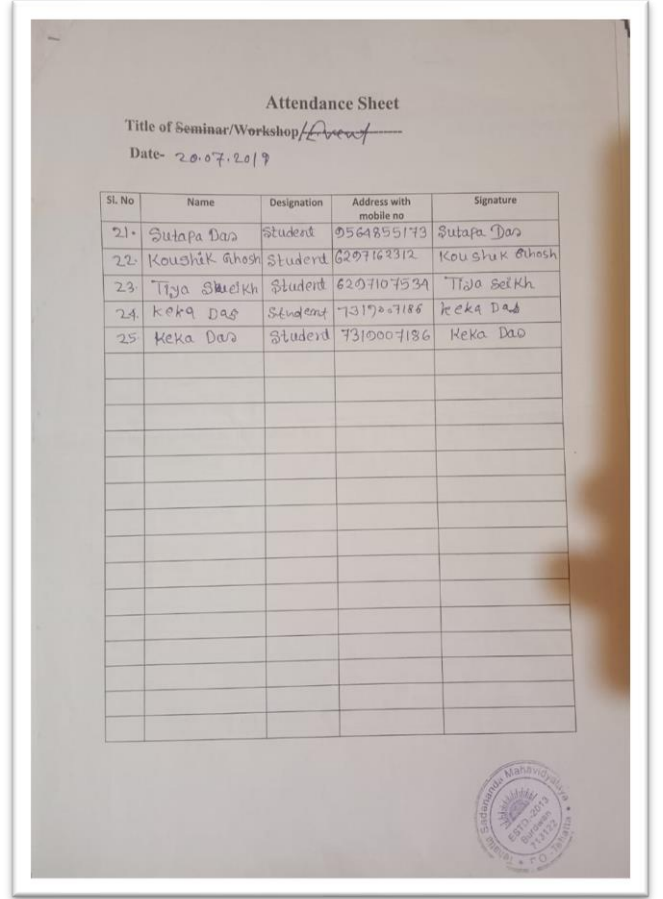 Attendance Sheet
Title of Seminar/Workshop/Event
Date- 20.07.2019
Sl. No Name Designation Address with mobile no Signature
21. Sutapa Das Student 9564855173 Sutapa Das
22. Koushik Ghosh Student 6297162312 Koushik Ghosh
23. Tiya Sheikh Student 6297107534 Tiya Seikh
24. Keka Das Student 7319007186 Keka Das
25. Keka Das Student 7319007186 Keka Das
Sadananda Mahavidyalaya
ESTD.-2013
Burdwan
713122